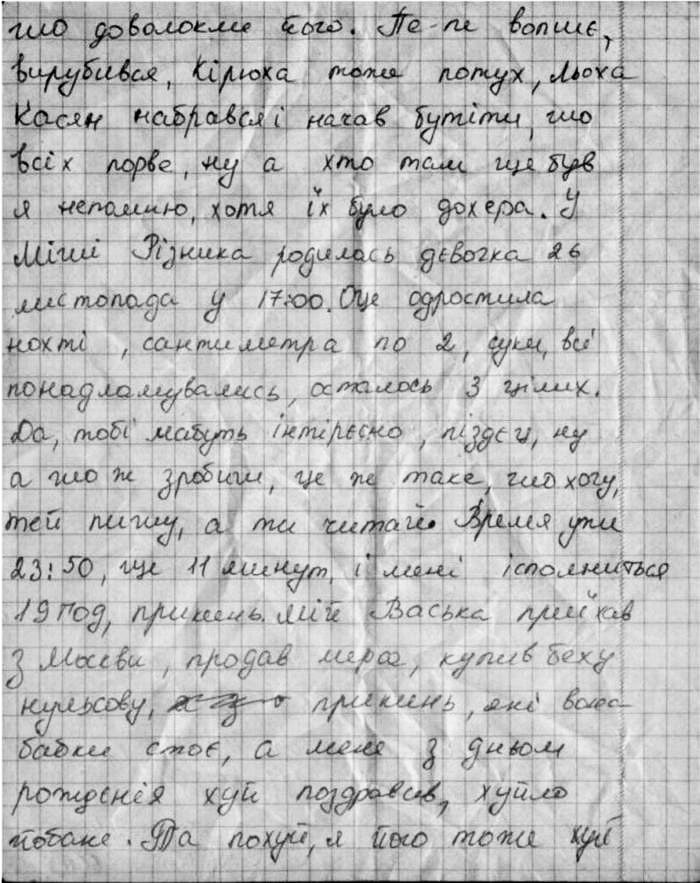 шо доволокли його. Пе-пе вопше,
вирубився, Кірюха тоже потух, Льоха
Касян набрався і начав бутіти, шо
всіх порве, ну а хто там ще був
я непомню, хотя їх було дохера. У
Міші Різника родилась дєвочка 26
листопада у 17:00. Оце одростила
нохті, сантиметра по 2, суки, всі
понадламувались, осталось 3 цілих.
Да, тобі мабуть інтірєсно, піздєц, ну
а шо ж зробиш, це ж таке, шо хочу,
тей пишу, а ти читай. Время уже
23:50, ще 11 минут, і мені ісполниться
19 год, прикинь. Мій Васька приїхав
з Москви, продав мерса, купив беху
нульову, прикинь, які вона
бабки стоє, а мене з дньом
рождєнія хуй поздравив, хуйло
йобане. Та похуй, я його тоже хуй